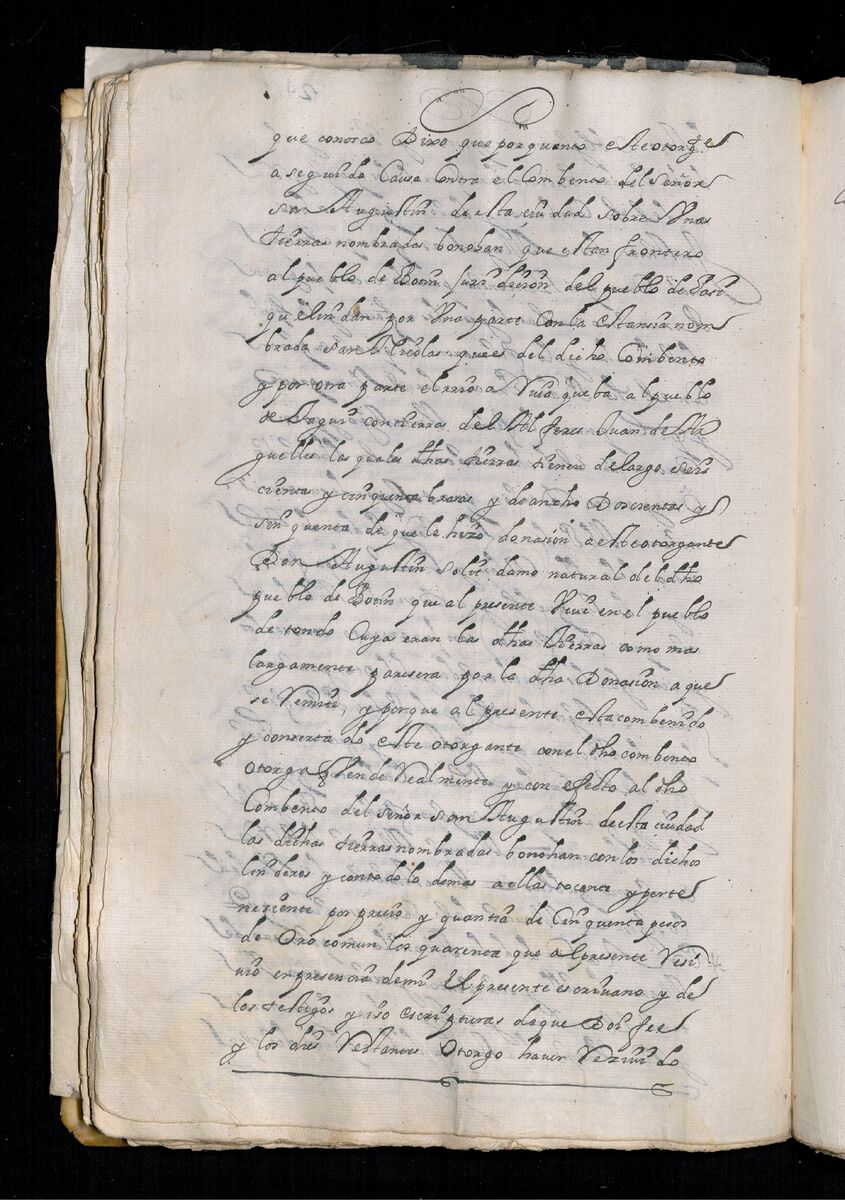 que conosco Dixo que por quanto este otorg.te
a seguido Causa Contra el Combento del Señor
san Augustin de esta ciudad sobre Vnas
tierras nombradas bonohan que estan frontero
al pueblo de Botin jurisdicion del pueblo de Pasi
que lindan por Vna parte con la estansia nom
brada san Nicolas que es del dicho Combento
y por otra parte el rrio a Vuio que ba al pueblo
de Taguii con tierras del Alferes Juan de Ar
guelles las quales dhas tierras tienen de largo seis
cientas y cinquenta brasas y de ancho Doscientas y
sin quenta de que le hizo donasion a este otorgante
Don Augustin solit damo natural del dho
pueblo de Botin que al presente Viue en el pueblo
de tondo Cuya eran las dhas tierras como mas
largamente paresera por la dha Donasion a que
se Remite, y porque al presente esta combenido
y consertado este otorgante con el dho combento
Otorga Vende Realmente y con efecto al dho
Combento del señor san Augustin de esta ciudad
las dichas tierras nombradas bonohan con los dichos
linderos y con todo lo demas a ellas tocante y perte
nesiente por presio y quantia de Cinquenta pesos
de Oro comun los quarenta que al presente Resi
uio en presencia de mi El presente escriuano y de
los testigos y uso escripturas de que Doi fee
y los dies Restantes Otorgo hauer Reziuido